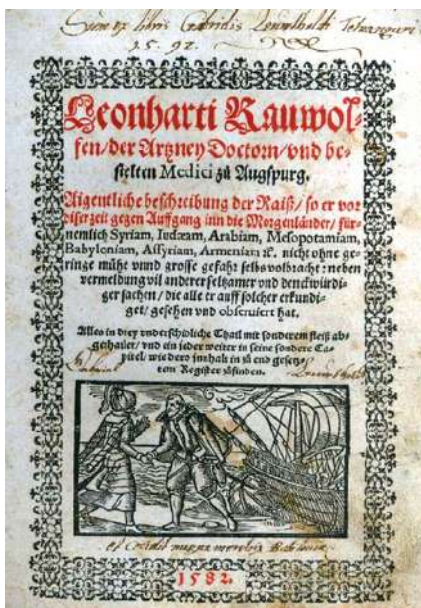 Sum ex libris Gabrielis
1592.
Leonharti Rauwol-
fen/ der Artzney Doctorn/ vnd be-
stelten Medici zů Augspurg.
Aigentliche beschreibung der Raiß/ so er vor
diser zeit gegen Auffgang inn die Morgenländer/ für-
nemlich Syriam, Iudæam, Arabiam, Mesopotamiam,
Babyloniam, Assyriam, Armeniam ꝛc. nicht ohne ge-
ringe mühe vnnd grosse gefahr selbs volbracht: neben
vermeldung vil anderer seltzamer vnd denckwürdi-
ger sachen/ die alle er auff solcher erkundi-
get/ gesehen vnd obseruiert hat.
Alles in drey vnderschidliche Thail mit sonderem fleiß ab-
gethailet/ vnd ein jeder weiter in seine sondere Ca-
pitel/ wie dero innhalt in zů end gesetz-
tem Register zůfinden.
Gabriel
1582.